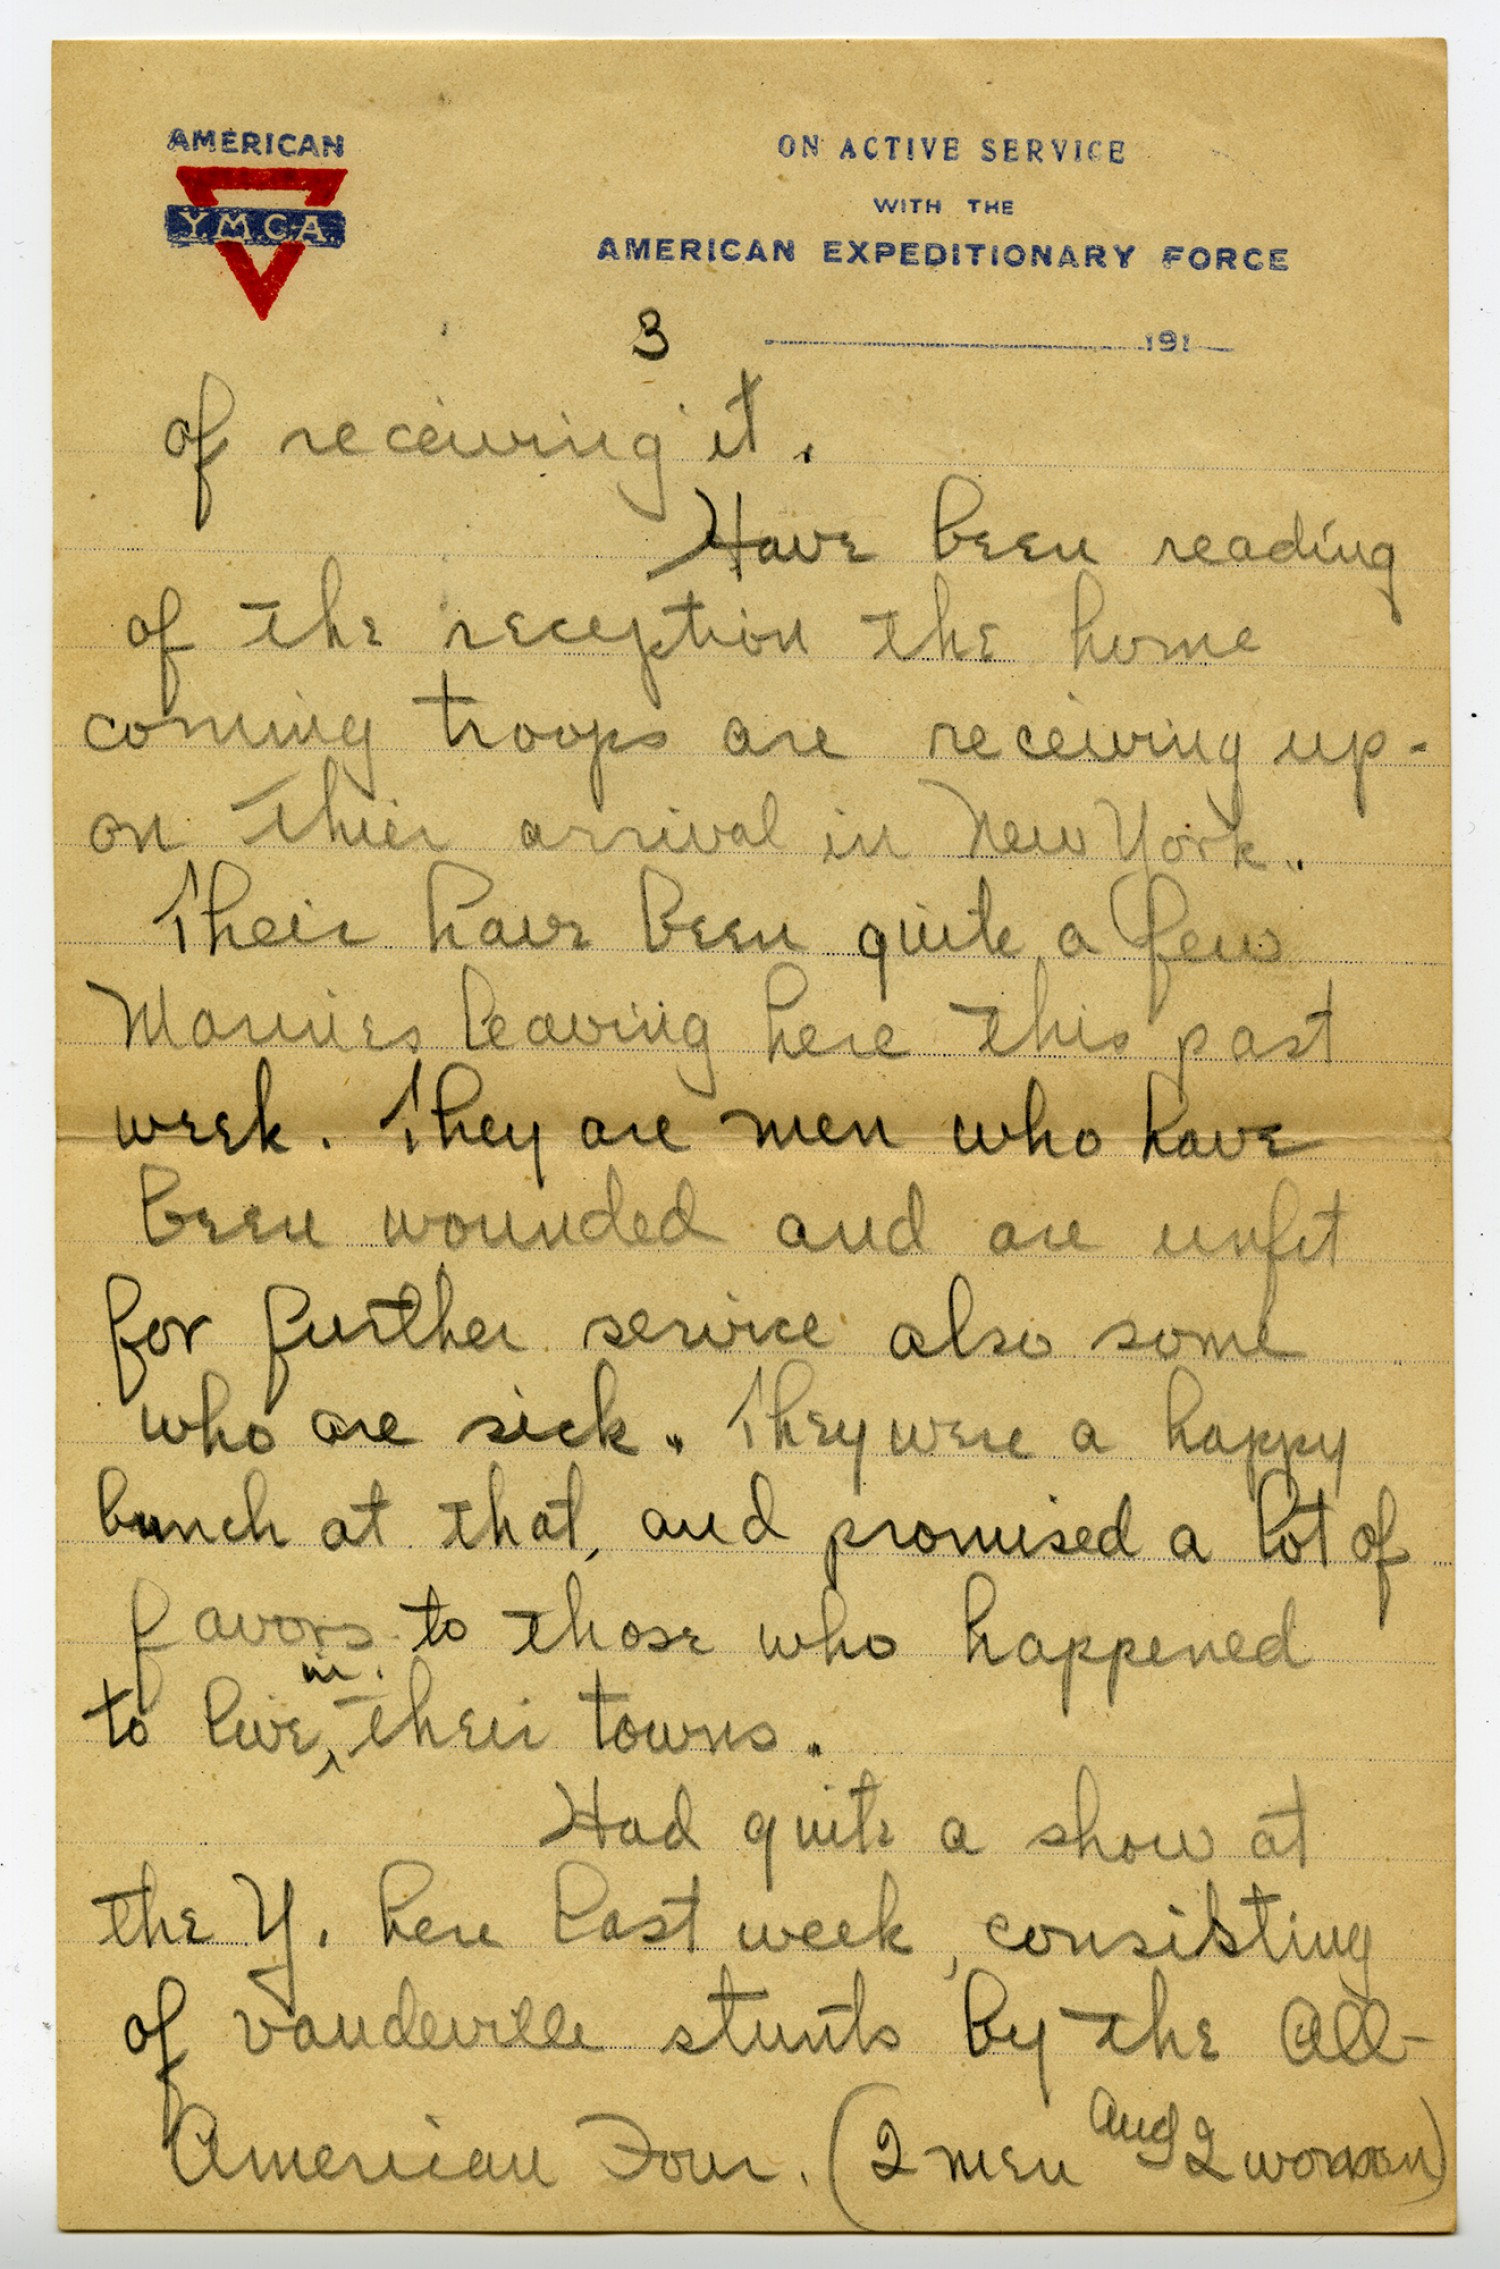 AMERICAN
Y.M.C.A.
ON ACTIVE SERVICE
WITH THE
AMERICAN EXPEDITIONARY FORCE
3 191
of receiving it.
Have been reading
of the reception the home
coming troops are receiving up-
on thier arrival in New York.
Their have been quite a few
Marines leaving here this past
week. They are men who have
been wounded and are unfit
for further service also some
who are sick. They were a happy
bunch at that, and promised a lot of
favors to those who happened
to live in their towns.
Had quite a show at
the Y. here last week, consisting
of vaudeville stunts by the All-
American Four. (2 men and 2 woman)